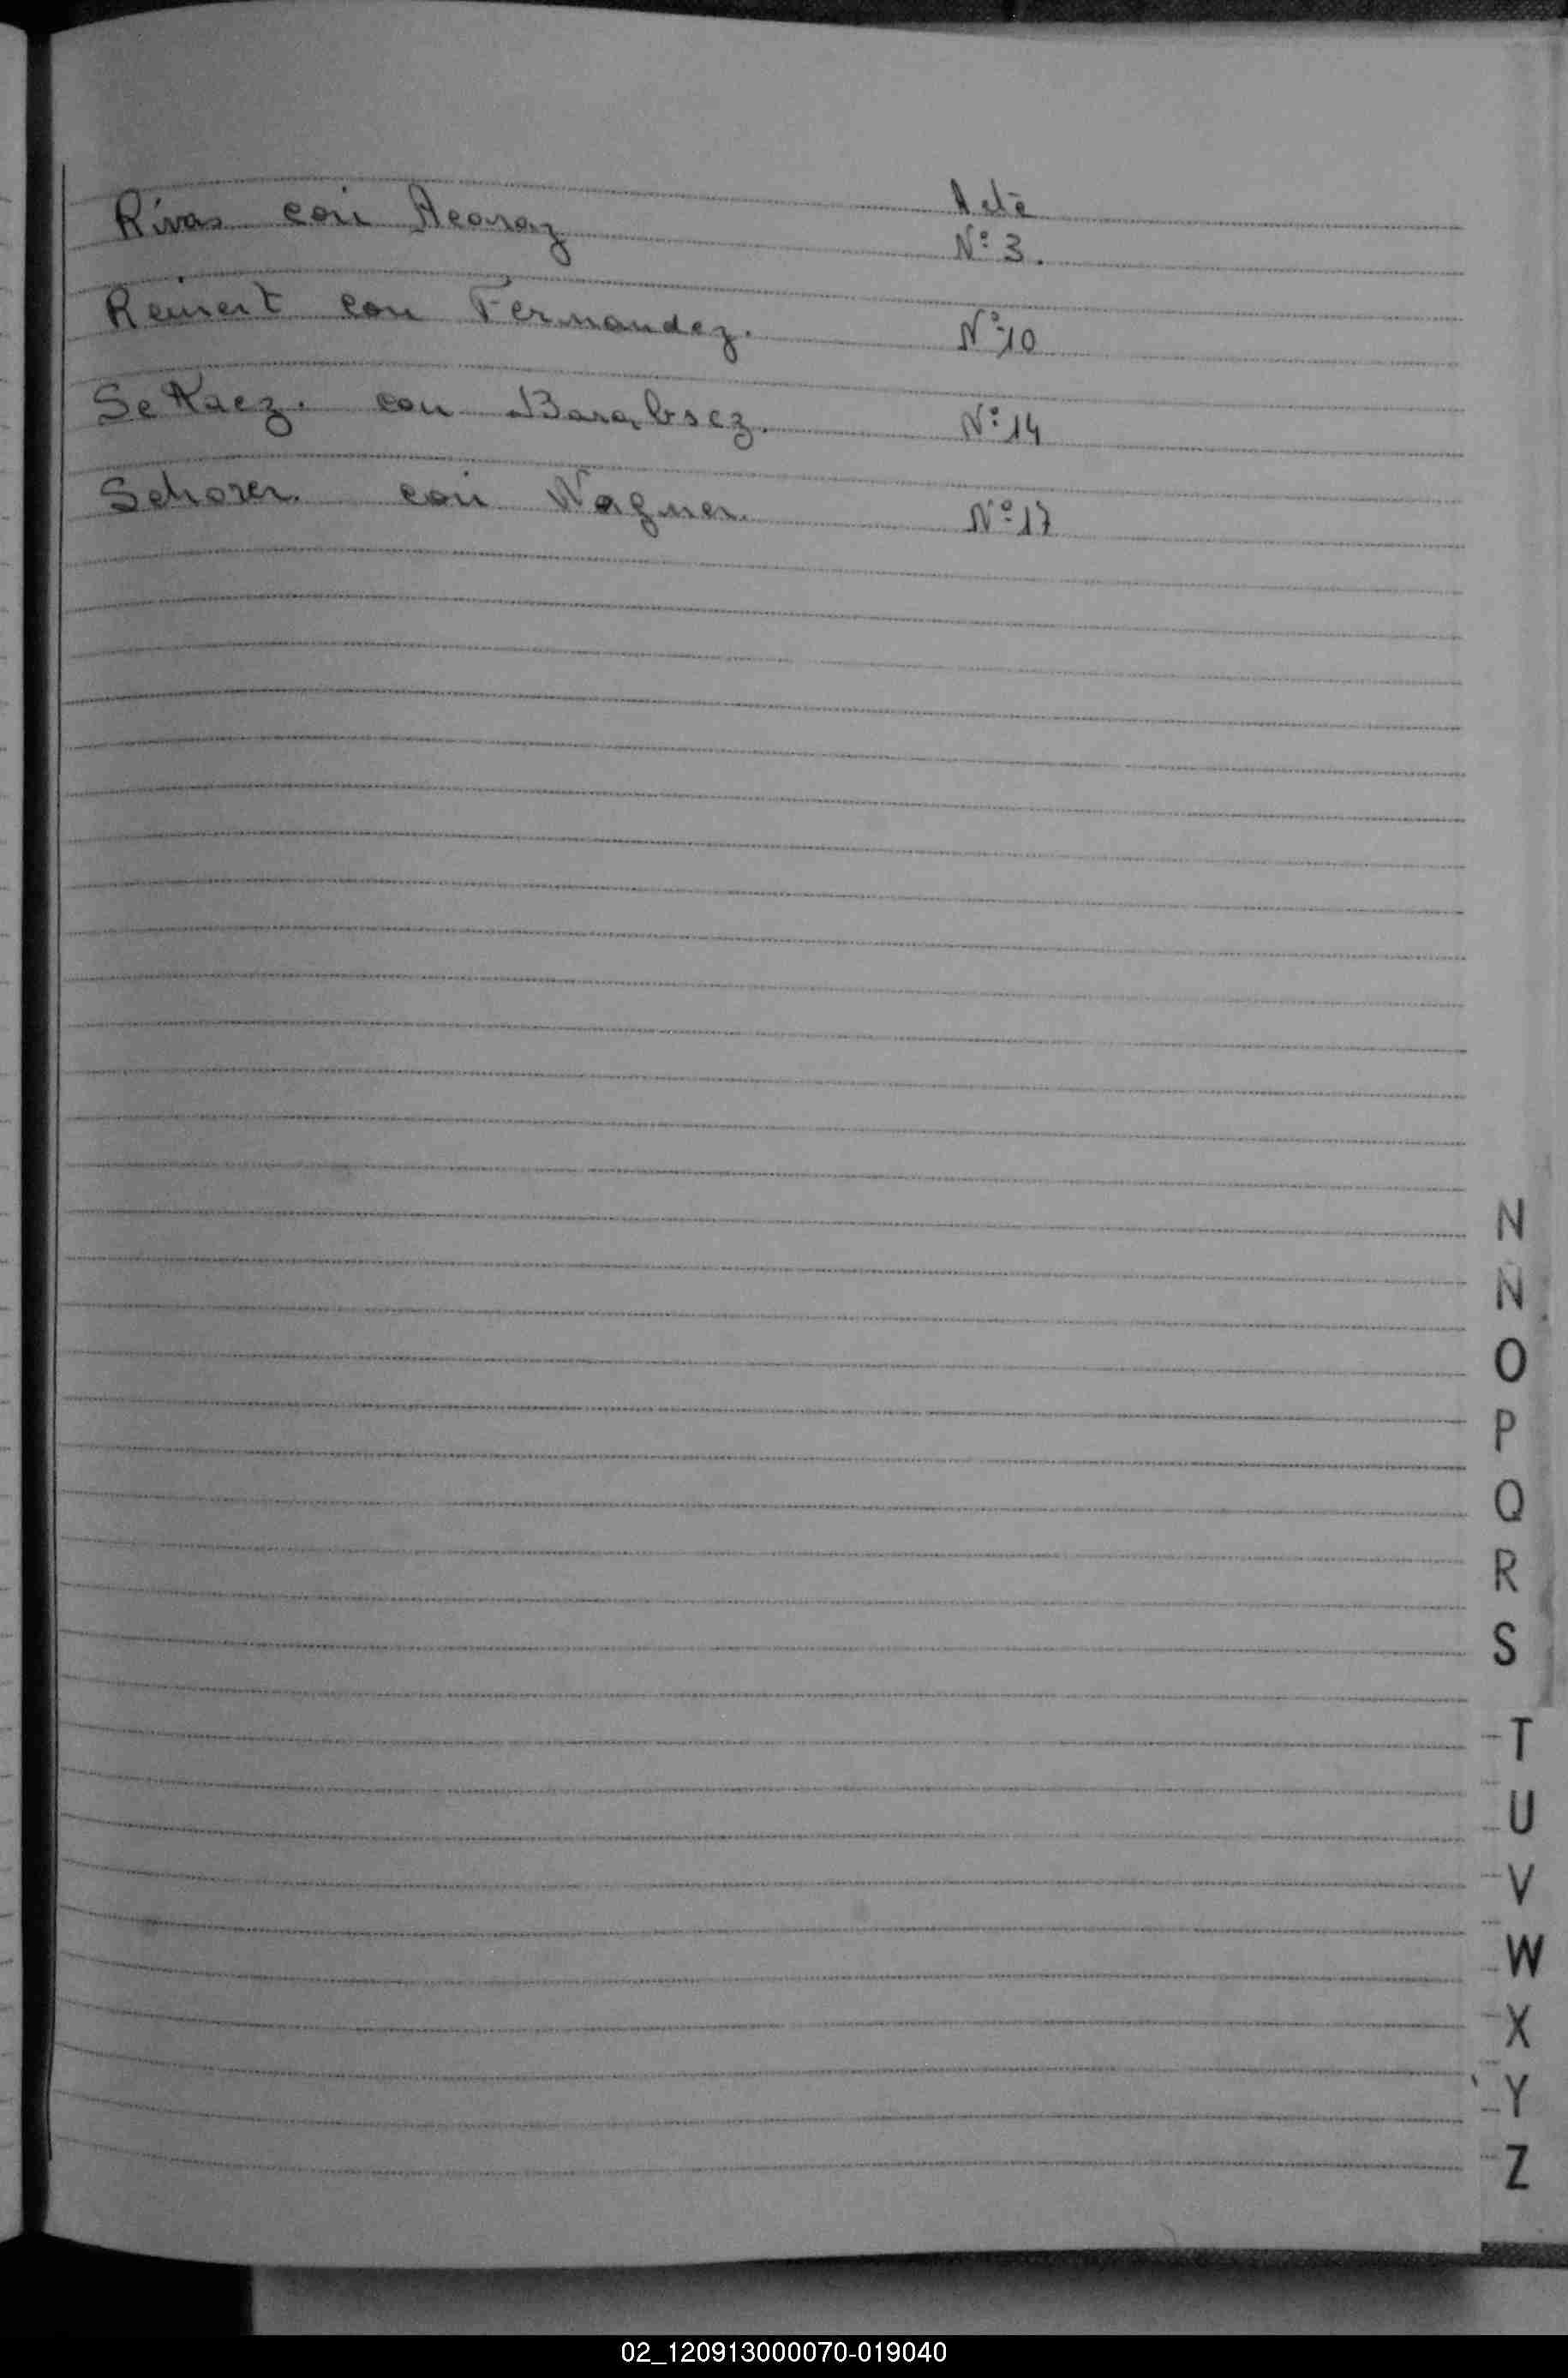 Acta
Rivas con Acaraz Nº 3.
Reinert con Fernandez. Nº 10
Setkaez. con Barabsez. Nº 14
Schorer. con Wagner. Nº 17
N
Ñ
O
P
Q
R
S
T
U
V
W
X
Y
Z
02_120913000070-019040